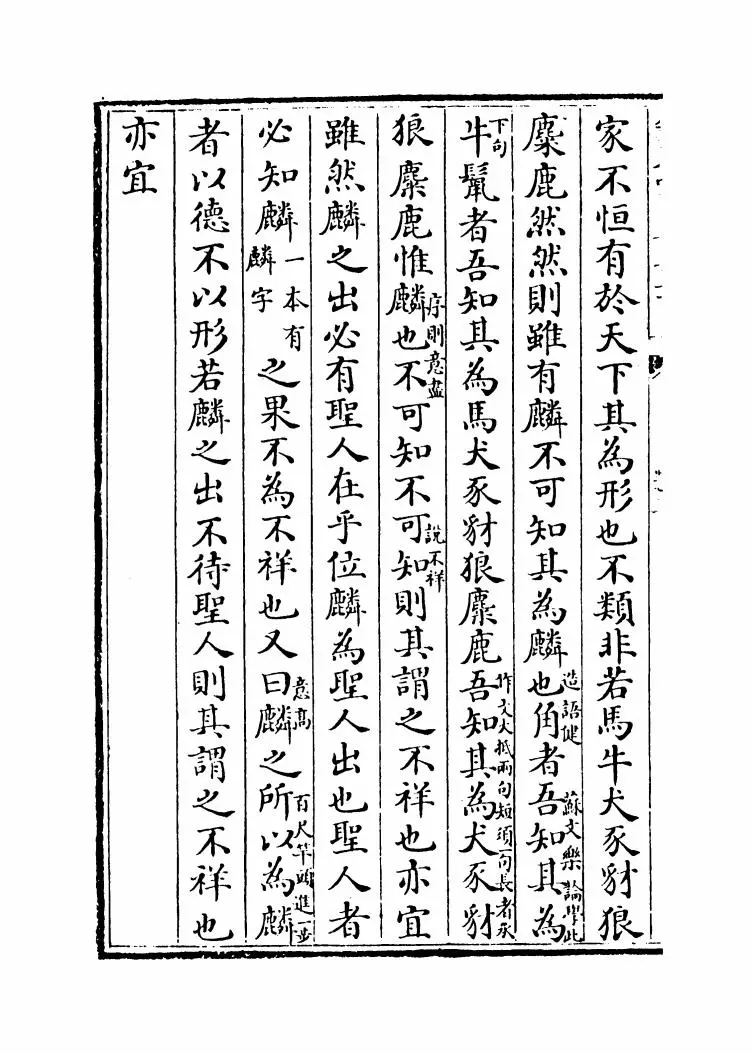 家不恒有於天下其為形也不類非若馬牛犬豕豺狼
麋鹿然然則雖有麟不可知其為麟也角者吾知其為
造語健
蘇文樂論學此
牛鬣者吾知其為馬犬豕豺狼麋鹿吾知其為犬豕豺
下句
作文大抵兩句短須一句長者承
狼麋鹿惟麟也不可知不可知則其謂之不祥也亦宜
序則意盡
說不祥
雖然麟之出必有聖人在乎位麟為聖人出也聖人者
必知麟一本有麟字之果不為不祥也又曰麟之所以為麟
意高
百尺竿頭進一步
者以德不以形若麟之出不待聖人則其謂之不祥也
亦宜